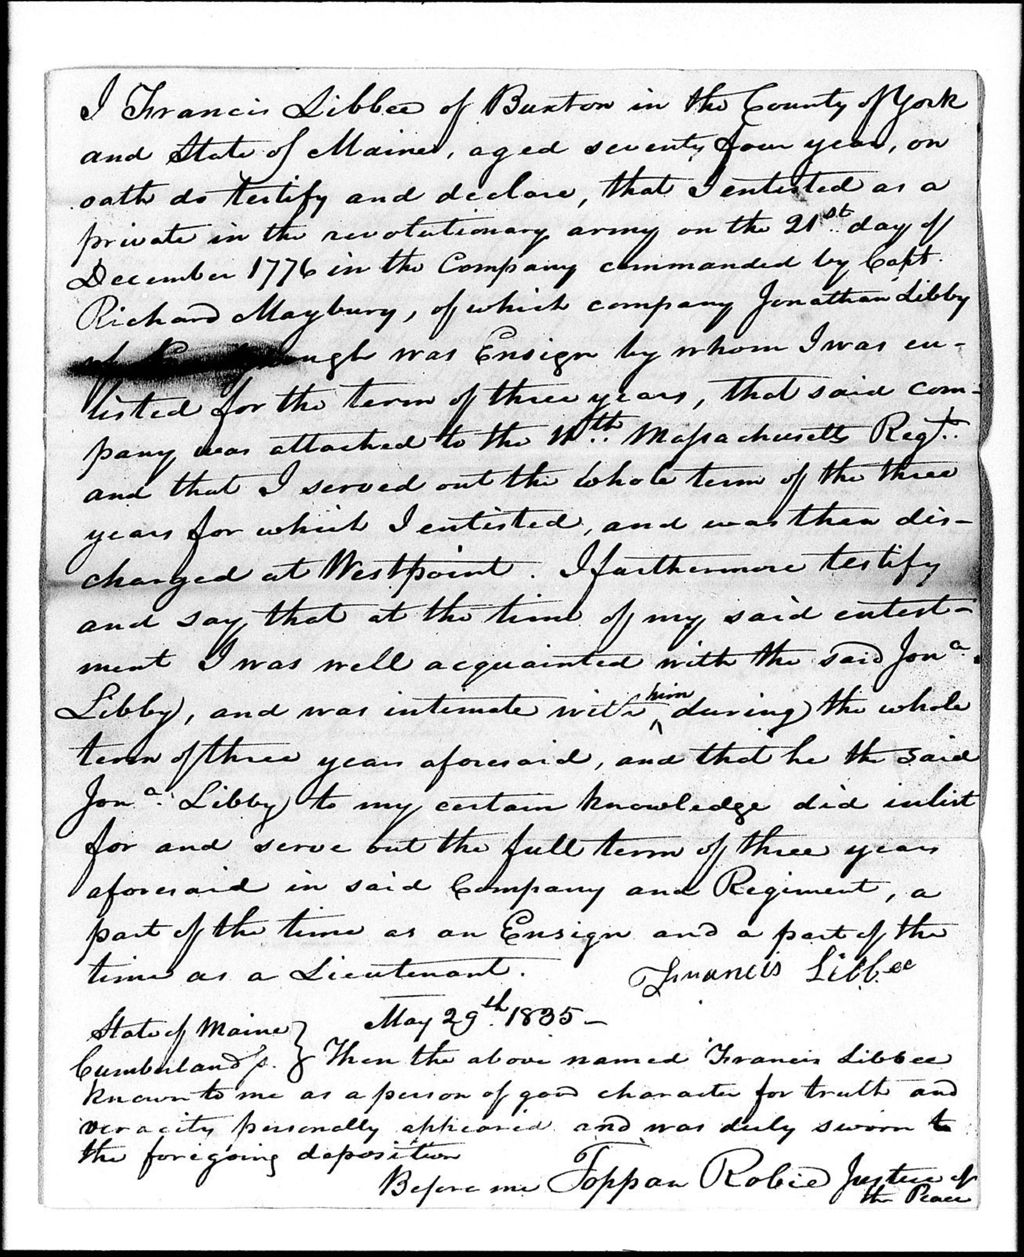 I Francis Libbee of Buxton in the County of York
and State of Maine, aged seventy four years, on
oath do testify and declare, that I enlisted as a
private in the revolutionary army on the 21st. day of
December 1776 in the Company commanded by Capt.
Richard Maybury, of which company Jonathan Libby
was Ensign by whom I was en-
listed for the term of three years, that said com-
pany was attached to the 11th. Massachusetts Regt.
and that I served out the whole term of the three
years for which I enlisted, and was then dis-
charged at Westpoint. I furthermore testify
and say, that at the time of my said enlist-
ment I was well acquainted with the said Jona.
Libby, and was intimate with him during the whole
term of three years aforesaid, and that he the said
Jona. Libby to my certain knowledge did inlist
for and serve out the full term of three years
aforesaid in said Company and Regiment, a
part of the time as an Ensign and a part of the
time as a Lieutenant. Francis Libbee
State of Maine } May 29th. 1835 -
Cumberland ss. } Then the above named Francis Libbee
known to me as a person of good character for truth and
veracity personally appeared and was duly sworn to
the foregoing deposition
Before me Toppan Robie Justice of
the Peace